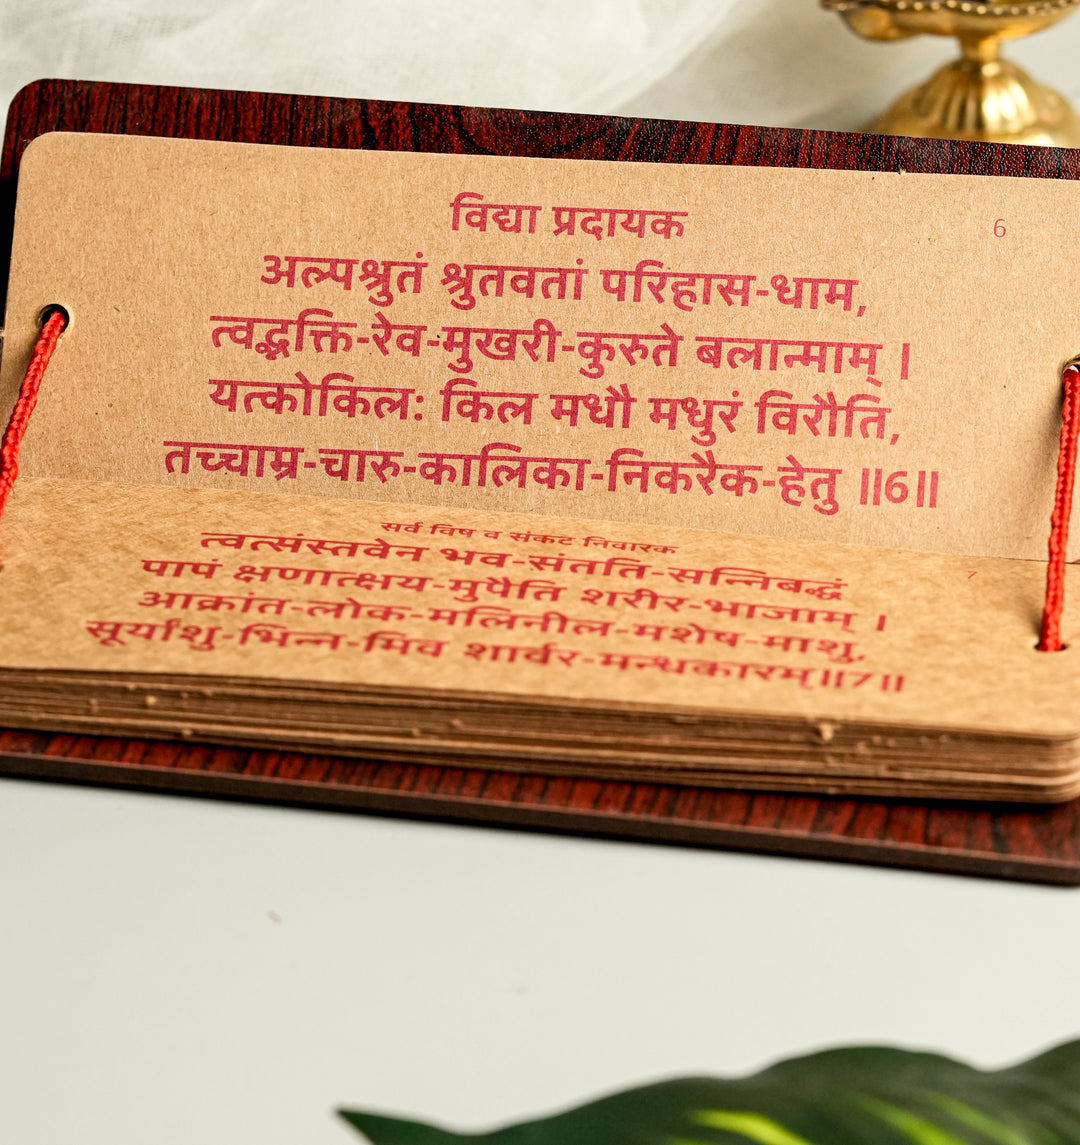 विद्या प्रदायक
6
अल्पश्रुतं श्रुतवतां परिहास-धाम,
त्वद्भक्ति-रेव-मुखरी-कुरुते बलान्माम् ।
यत्कोकिल: किल मधौ मधुरं विरौति,
तच्चाम्र-चारु-कालिका-निकरैक-हेतु ॥6॥
सर्व विष व संकट निवारक
7
त्वत्संस्तवेन भव-संतति-सन्निबद्धं
पापं क्षणात्क्षय-मुपैति शरीर-भाजाम् ।
आक्रांत-लोक-मलिनील-मशेष-माशु,
सूर्यांशु-भिन्न-मिव शार्वर-मन्धकारम्॥7॥